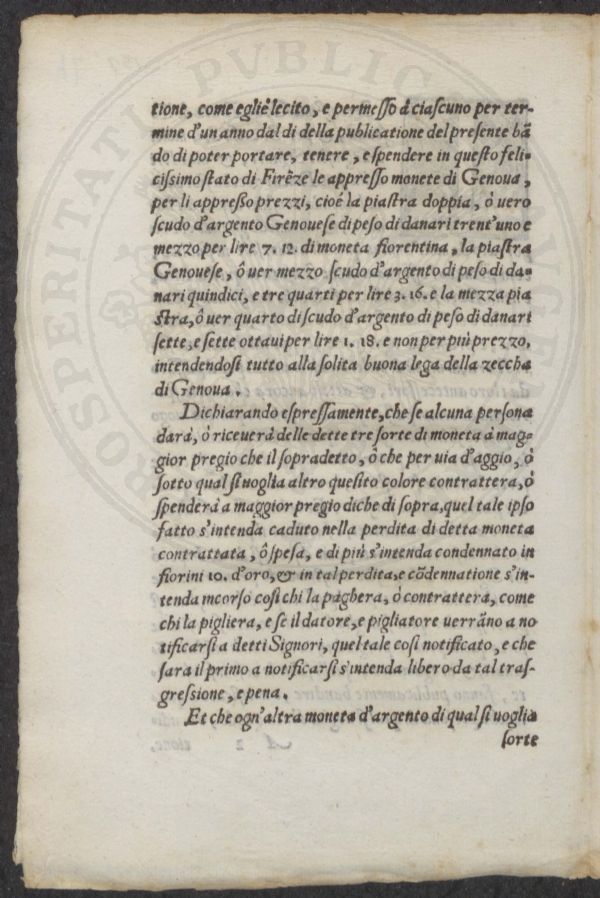 tione, come egliè lecito, e permeſſo à ciaſcuno per ter-
mine d'un anno dal di della publicatione del preſente bã
do di poter portare, tenere, e ſpendere in queſto feli-
ciſsimo ſtato di Firẽze le appreſſo monete di Genoua,
per li appreßo prezzi, cioé la piaſtra doppia, ò uero
ſcudo d'argento Genoueſe di peſo di danari trent'uno e
mezzo per lire 7. 12. di moneta fiorentina, la piaſtra
Genoueſe, ô uer mezzo ſcudo d'argento di peſo di da-
nari quindici, e tre quarti per lire 3. 16. e la mezza pia
ſtra, ô uer quarto di ſcudo d'argento di peſo di danari
ſette, e ſette ottaui per lire 1. 18. e non per più prezzo,
intendendoſi tutto alla ſolita buona lega della zeccha
di Genoua.
Dichiarando eſpreſſamente, che ſe alcuna perſona
darà, ò riceuerà delle dette tre ſorte di moneta à mag-
gior pregio che il ſopradetto, ô che per via d'aggio, ò
ſotto qual ſi uoglia altro queſito colore contrattera, ò
ſpenderà a maggior pregio di che di ſopra, quel tale ipſo
fatto s'intenda caduto nella perdita di detta moneta
contrattata, ô ſpeſa, e di più s'intenda condennato in
fiorini 10. d'oro, & in tal perdita, e cõdennatione s'in-
tenda incorſo coſi chi la paghera, ò contrattera, come
chi la pigliera, e ſe il datore, e pigliatore uerrãno a no
tificarſi a detti Signori, quel tale coſi notificato, e che
ſara il primo a notificarſi s'intenda libero da tal traſ-
greſsione, e pena.
Et che ogn'altra moneta d'argento di qual ſi uoglia
ſorte